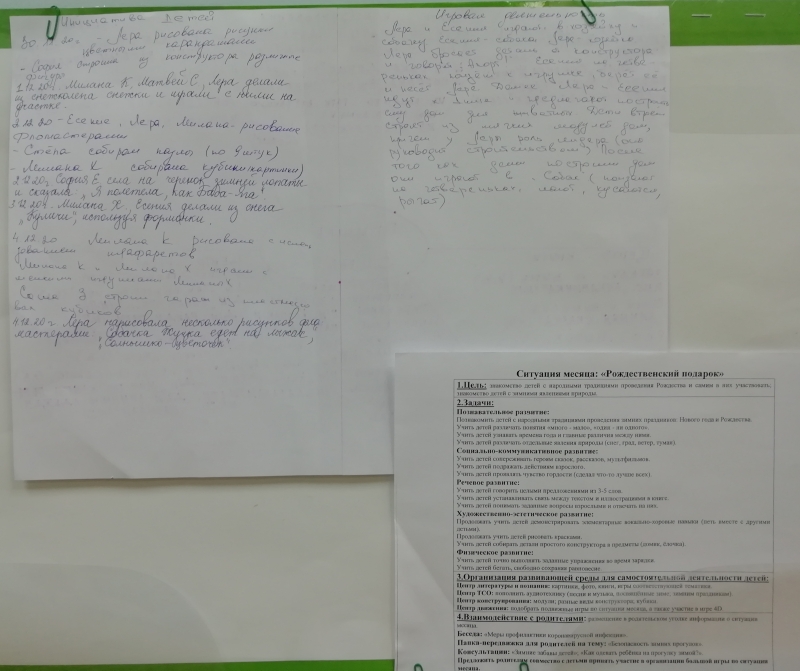 Инициатива детей
30.11.20г. - Лера рисовала рисунки
цветными карандашами
- София строила из конструктора различные
фигуры
1.12.20г. Милана К, Матвей С, Лера делали
из снегокомпа снежки и играли с ними на
участке.
2.12.20 - Есения, Лера, Милана - рисование
фломастерами
- Стёпа собирал пазлы (по 9 штук)
- Милана К собирала кубики (картинки)
2.12.20г. София Е села на черенок зимней лопаты
и сказала „Я полетела, как баба-Яга".
3.12.20г. Милана Х, Есения делали из снега
используя формочки.
4.12.20 Милана К рисовала с исполь
зованием трафаретов
Милана К и Милана Х играли с
игрушками
Саша строил гараж из
кубиков
4.12.20г. Лера нарисовала несколько рисунков фло
мастерами „Собачка Жучка едет на лыжах",
„Солнышко-цветочек"
Игровая деятельность
Лера и Есения играли в
собачку Есения - собака Лера - хозяйка
Лера бросает детали конструктора
и говорит Есения на четве
реньках к игрушке, берёт её
и несёт Лере. Далее Лера и Есения
идут к и предлагают построить
дом для животных. Дети
строят из мягких модулей дом,
причем у Леры роль лидера (она
руководит строительством). После
того как дети построили дом
они играют в собак (ползают
на четвереньках, лают, кусаются,
рычат)
Ситуация месяца: «Рождественский подарок»
1.Цель: знакомство детей с народными традициями проведения Рождества и самим в них участвовать,
знакомство детей с зимними явлениями природы.
2.Задачи:
Познавательное развитие:
Познакомить детей с народными традициями проведения зимних праздников: Нового года и Рождества.
Учить детей различать понятия «много - мало», «один - ни одного».
Учить детей узнавать времена года и главные различия между ними.
Учить детей различать отдельные явления природы (снег, град, ветер, туман).
Социально-коммуникативное развитие:
Учить детей сопереживать героям сказок, рассказов, мультфильмов.
Учить детей подражать действиям взрослого.
Учить детей проявлять чувство гордости (сделал что-то лучше всех).
Речевое развитие:
Учить детей говорить целыми предложениями из 3-5 слов.
Учить детей устанавливать связь между текстом и иллюстрациями в книге.
Учить детей понимать заданные вопросы взрослыми и отвечать на них.
Художественно-эстетическое развитие:
Продолжать учить детей демонстрировать элементарные вокально-хоровые навыки (петь вместе с другими
детьми).
Продолжать учить детей рисовать красками.
Учить детей собирать детали простого конструктора в предметы (домик, ёлочка).
Физическое развитие:
Учить детей точно выполнять заданные упражнения во время зарядки.
Учить детей бегать, свободно сохраняя равновесие.
3.Организация развивающей среды для самостоятельной деятельности детей:
Центр литературы и познания: картинки, фото, книги, игры соответствующей тематики.
Центр ТСО: пополнить аудиотехнику (песни и музыка, посвящённые зиме, зимним праздникам).
Центр конструирования: модули, разные виды конструктора, кубики.
Центр движения: подобрать подвижные игры по ситуации месяца, а также участие в игре
4.Взаимодействие с родителями: размещение в родительском уголке информации о ситуации
месяца.
Беседа: «Меры профилактики коронавирусной инфекции».
Папка-передвижка для родителей на тему: «Безопасность зимних прогулок».
Консультации: «Зимние забавы детей», «Как одевать ребёнка на прогулку зимой».
Предложить родителям совместно с детьми принять участие в организации большой игры по ситуации
месяца.